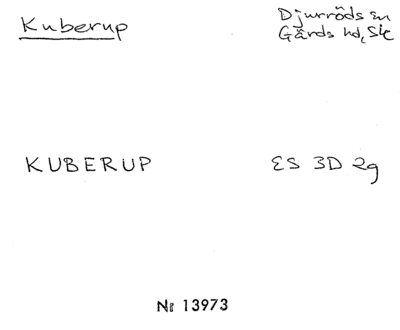 Kuberup
Djurröds sn
Gärds hd, Sk
KUBERUP
ES 3D 2g
Nr 13973